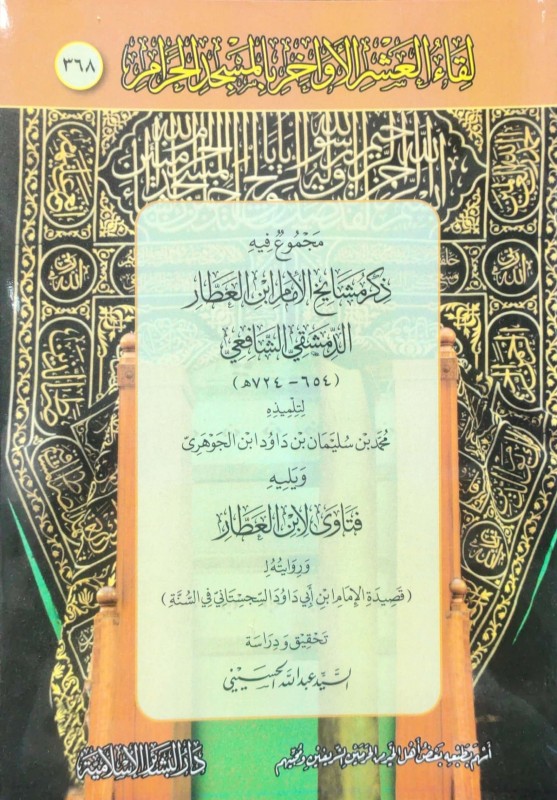 لِقَاءُ العَشْرِ الأَوَاخِرِ بِالمَسْجِدِ الحَرَامِ
٣٦٨
مَجْمُوعٌ فِيهِ
ذِكْرُ مَشَايِخِ الإِمَامِ ابْنِ العَطَّارِ
الدِّمَشْقِيِّ الشَّافِعِيِّ
(٦٥٤ - ٧٢٤هـ)
لِتِلْمِيذِهِ
مُحَمَّد بْن سُلَيْمَان بْن دَاوُد ابْن الجَوْهَرِيّ
وَيَلِيهِ
فَتَاوَى لِابْنِ العَطَّارِ
وَرِوَايَتُهُ لِـ
(قَصِيدَةِ الإِمَامِ ابْنِ أَبِي دَاوُد السِّجِسْتَانِيّ فِي السُّنَّةِ)
تَحْقِيق وَدِرَاسَة
السَّيِّد عَبْد اللّٰه الحُسَيْنِيّ
أَسْهَمَ بِطَبْعِهِ بَعْضُ أَهْلِ الخَيْرِ مِنَ الحَرَمَيْنِ الشَّرِيفَيْنِ وَمُحِبِّيهِم
دَارُ البَشَائِرِ الإِسْلَامِيَّة